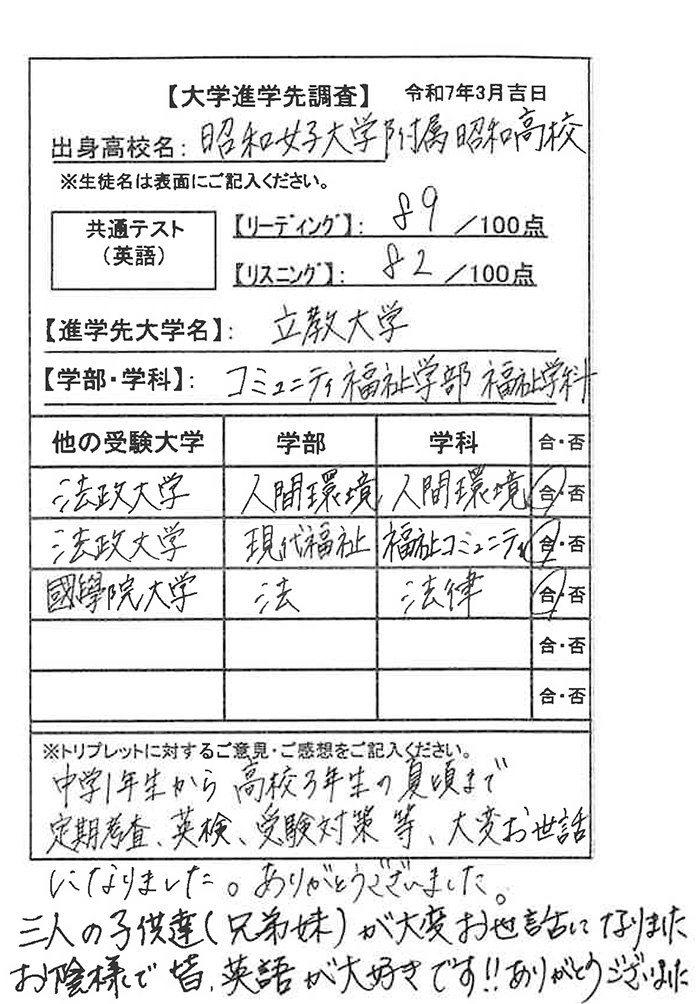 【大学進学先調査】 令和7年3月吉日
出身高校名: 昭和女子大学附属昭和高校
※生徒名は表面にご記入ください。
共通テスト
(英語)
【リーディング】: 89 /100点
【リスニング】: 82 /100点
【進学先大学名】: 立教大学
【学部・学科】: コミュニティ福祉学部 福祉学科
他の受験大学 学部 学科 合・否
法政大学 人間環境 人間環境 合・否
法政大学 現代福祉 福祉コミュニティ 合・否
國學院大学 法 法律 合・否
合・否
合・否
※トリプレットに対するご意見・ご感想をご記入ください。
中学1年生から高校3年生の夏頃まで
定期考査、英検、受験対策等、大変お世話
になりました。ありがとうございました。
三人の子供達(兄弟妹)が大変お世話になりました
お陰様で皆、英語が大好きです!!ありがとうございました